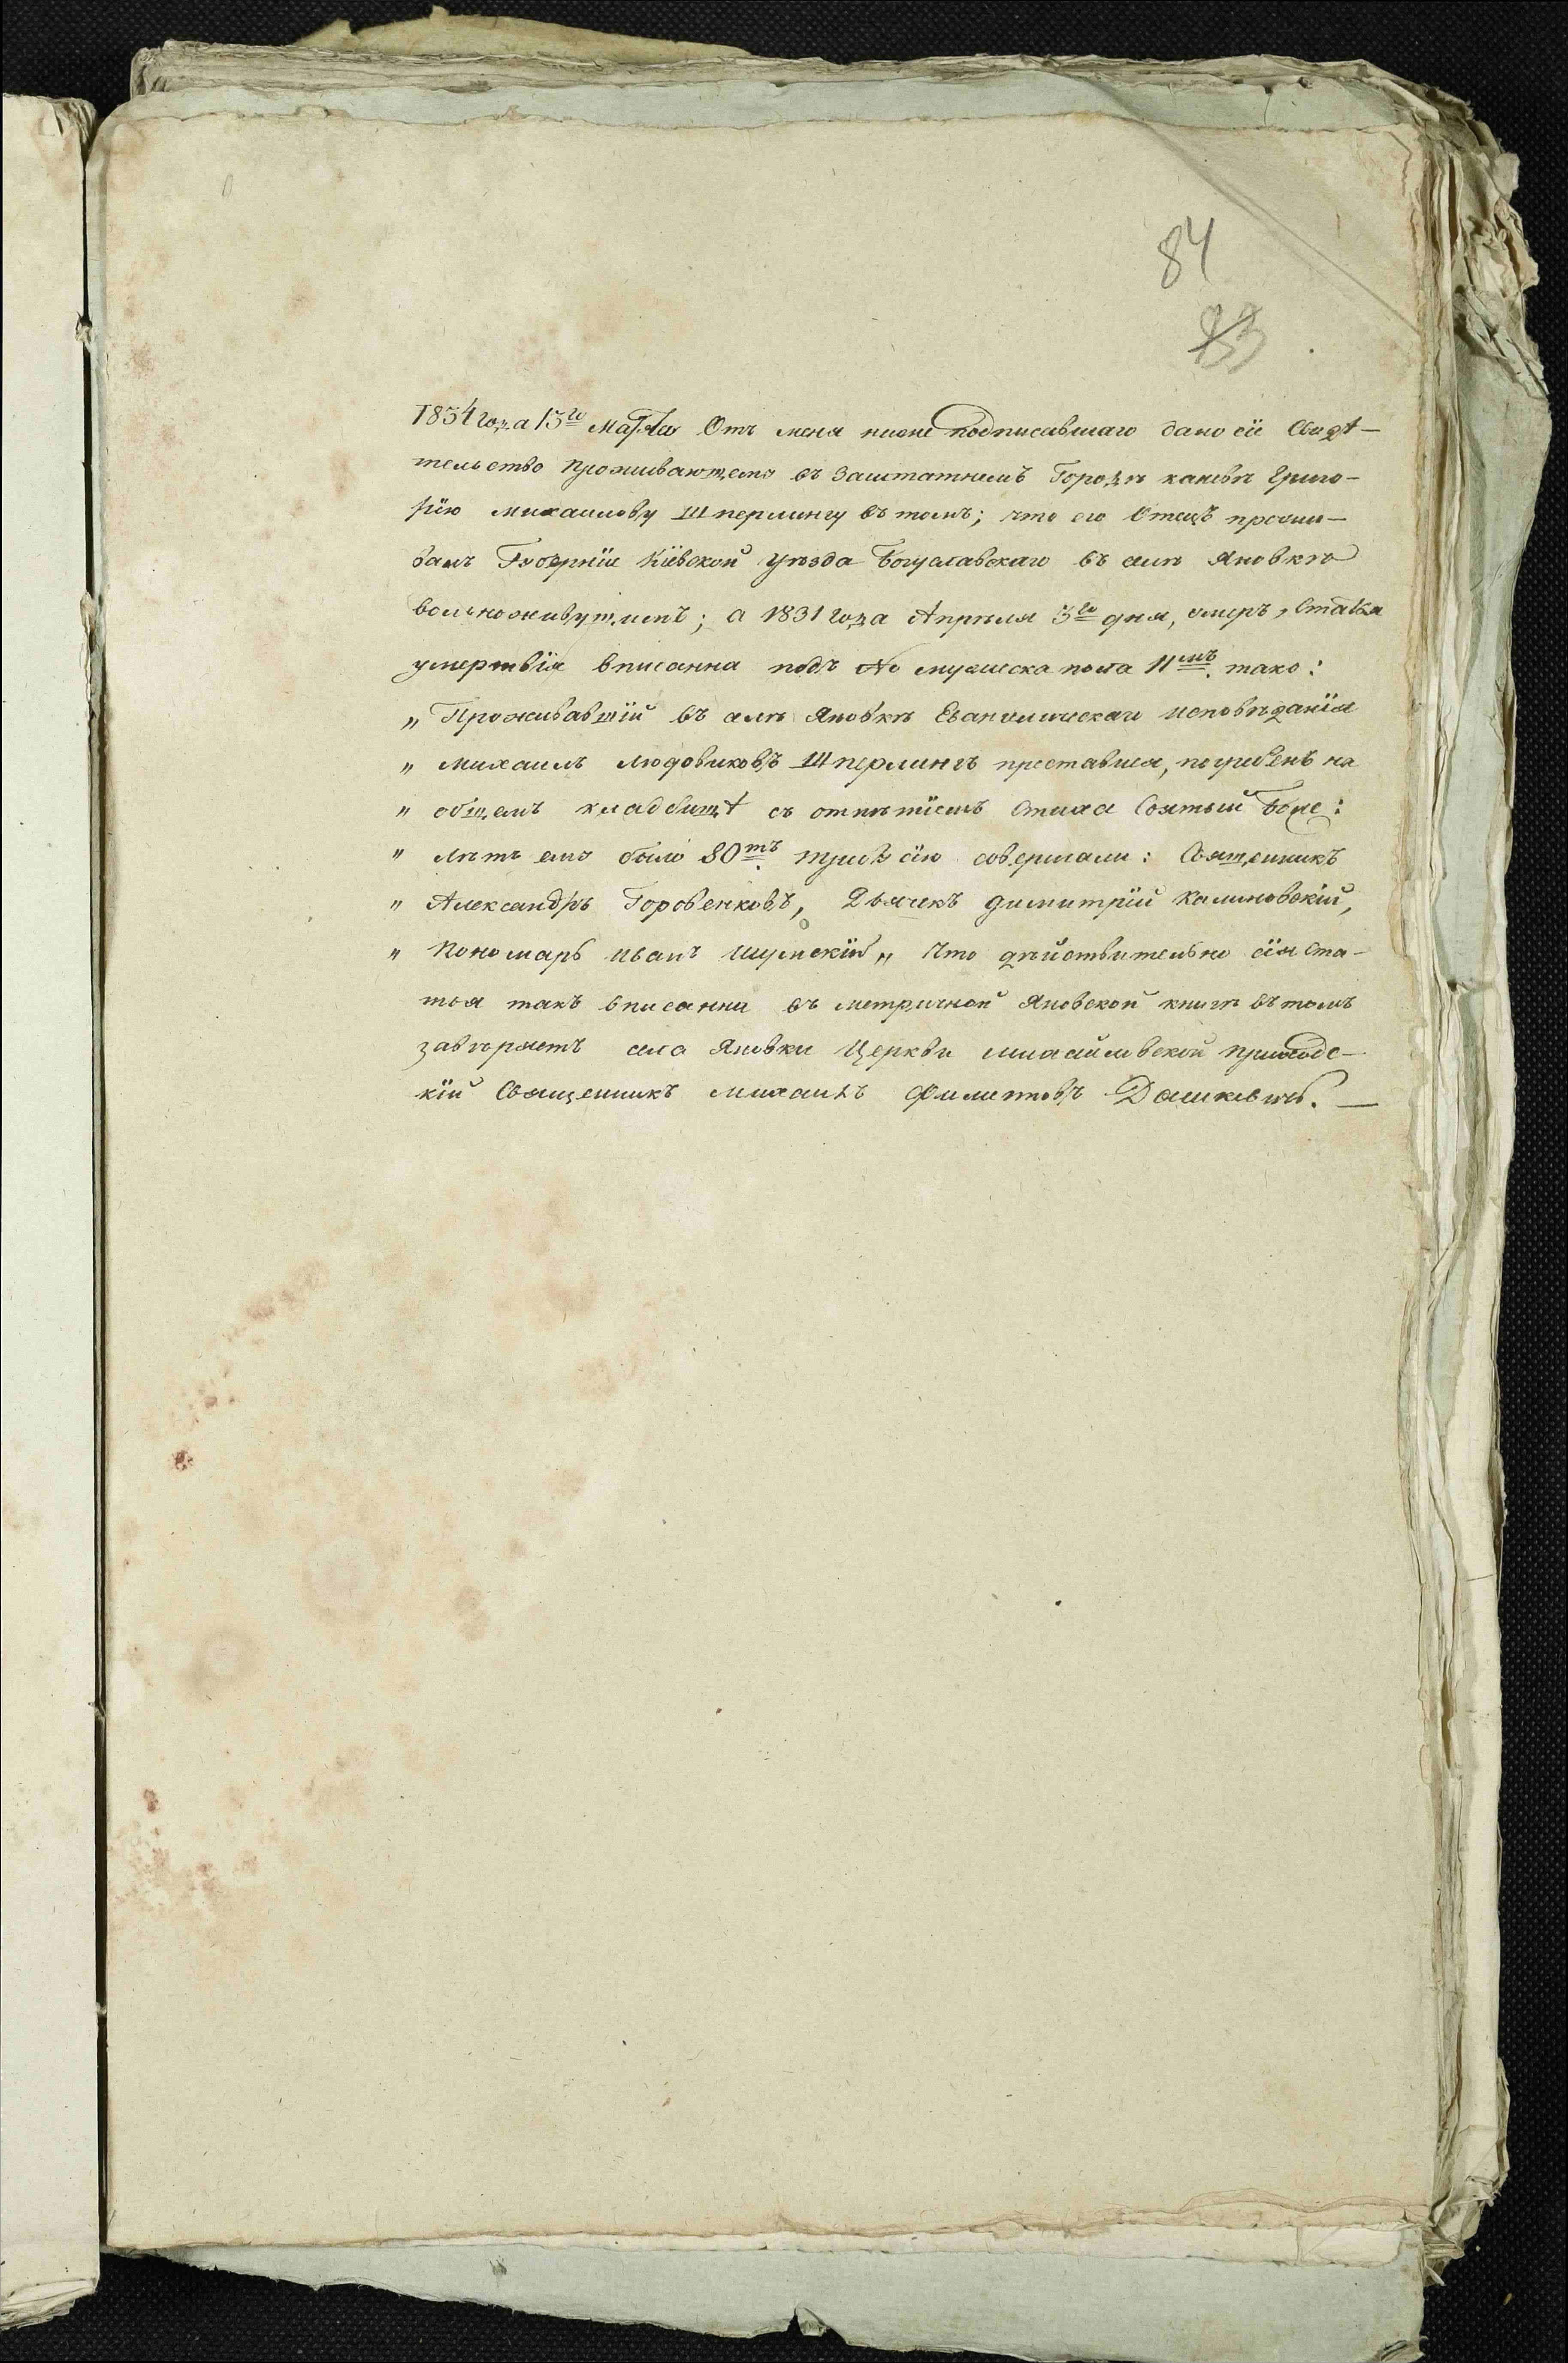 84
83
1834 года 13го Марта Отъ меня ниже подписавшаго дано сіе Свидѣ-
тельство проживающему въ Заштатнемъ Городѣ каневѣ Григо-
рію михаилову Шперлингу въ томъ; что его Отецъ прожи-
валъ Губерніи Кіевской уѣзда Богуславскаго въ селѣ Яновкѣ
вольноживущимъ; а 1831 года Апрѣля 3го дня, умеръ, Статья
умертвія вписанна подъ № мужеска пола 11мъ тако:
„ Проживавшій въ селѣ Яновкѣ Евангелическаго исповѣданія
„ михаилъ людовиковъ Шперлингъ преставися, погребенъ на
„ общемъ кладбищѣ съ отпѣтіемъ Стиха Святый Боже:
„ лѣтъ ему было 80тъ требу сію совершали: Священникъ
„ Александръ Горовенковъ, Дьячекъ димитрій Калиновскій,
„ Пономарь иванъ Шумскій „ Что дѣйствительно сія Ста-
тья такъ вписанна въ метричной Яновской книгѣ въ томъ
завѣряетъ села Яновки Церкви михайловской приходс-
кій Священникъ михаилъ Филиповъ Дашкевичъ. —